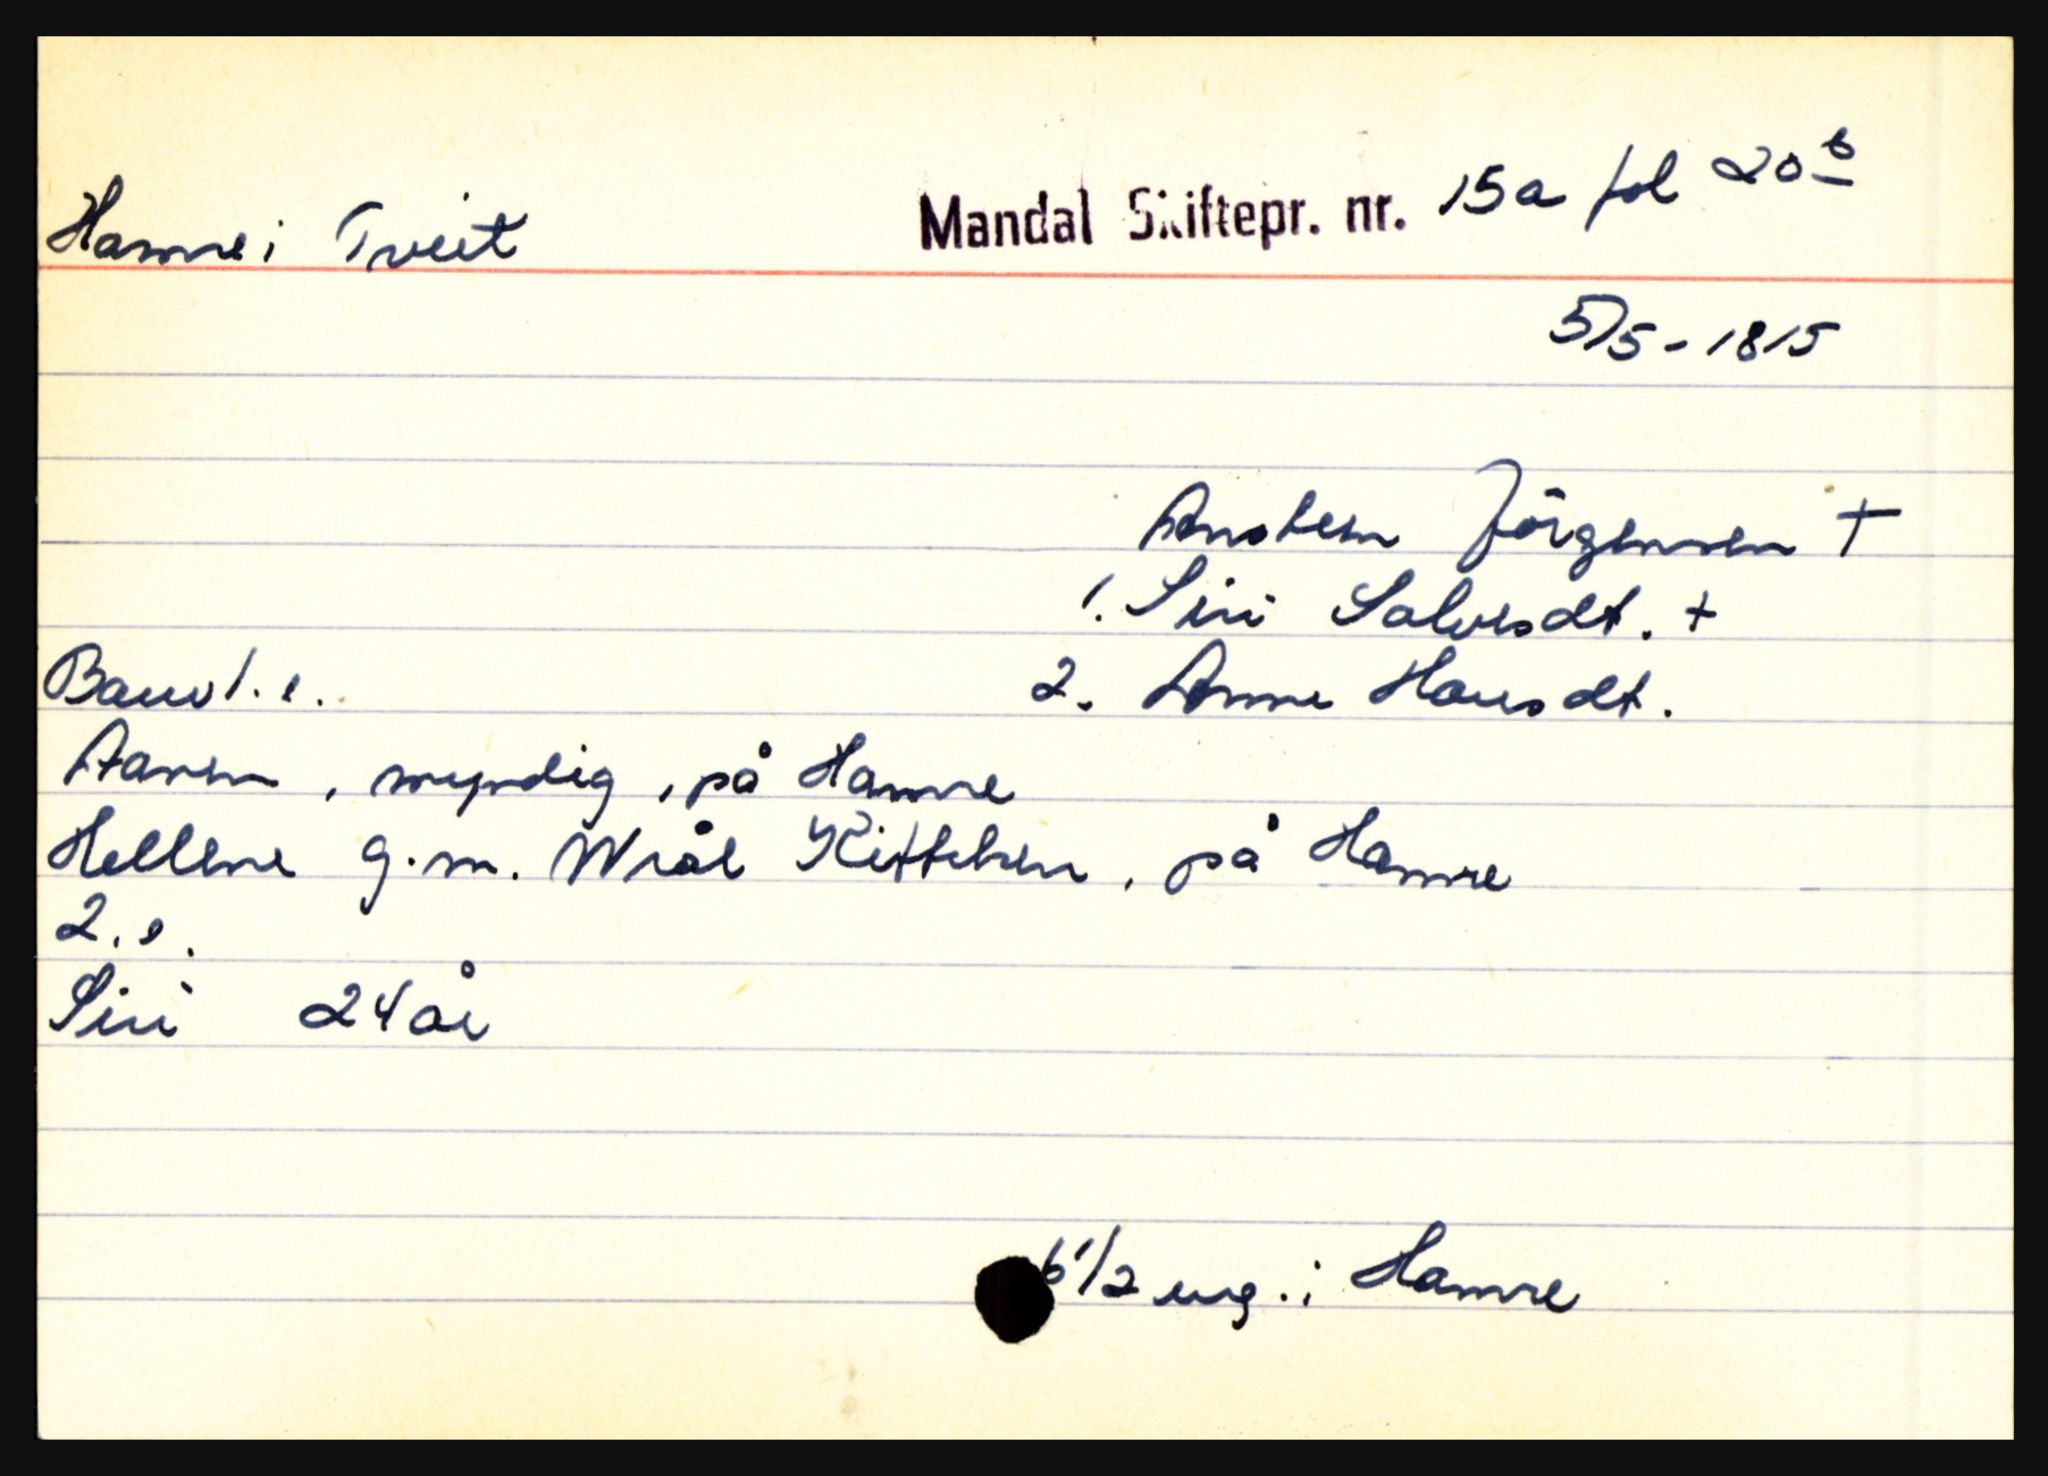 Hamre i Tveit Mandal Skiftepr. nr. 15a fol 20b
5/5-1815
Anstein Jörgensen †
1. Siri Salvesdt. +
2. Anne Hansdt.
Barn 1. e.
Aanen, myndig, på Hamre
Hellene g.m. Wrål Kittelsen, på Hamre
2. e.
Siri 24 år
6 1/2 eng. i Hamre